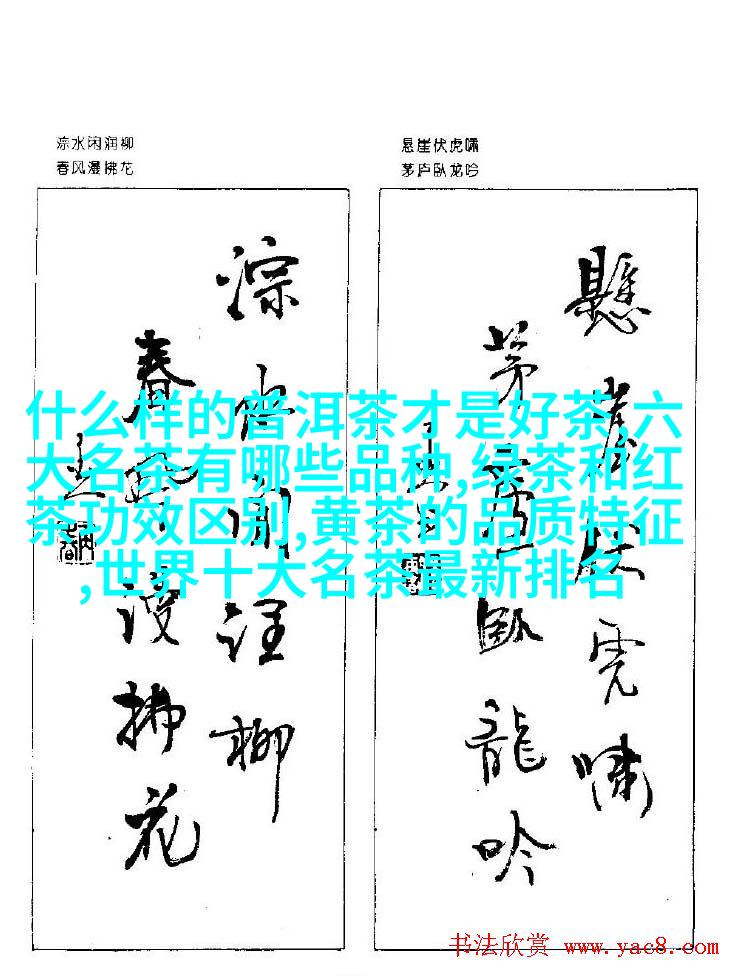 淙水闲润柳
春风漫拂花
悬崖伏虎啸
茅庐卧龙吟
淙水閒润柳
春风漫拂花
懸崖伏虎啸
茅庐卧龍吟
什么样的普洱茶才是好茶,六
大名茶有哪些品种,绿茶和红
茶功效区别,黄茶的品质特征
,世界十大名茶最新排名
书法欣赏 www.yac8.com